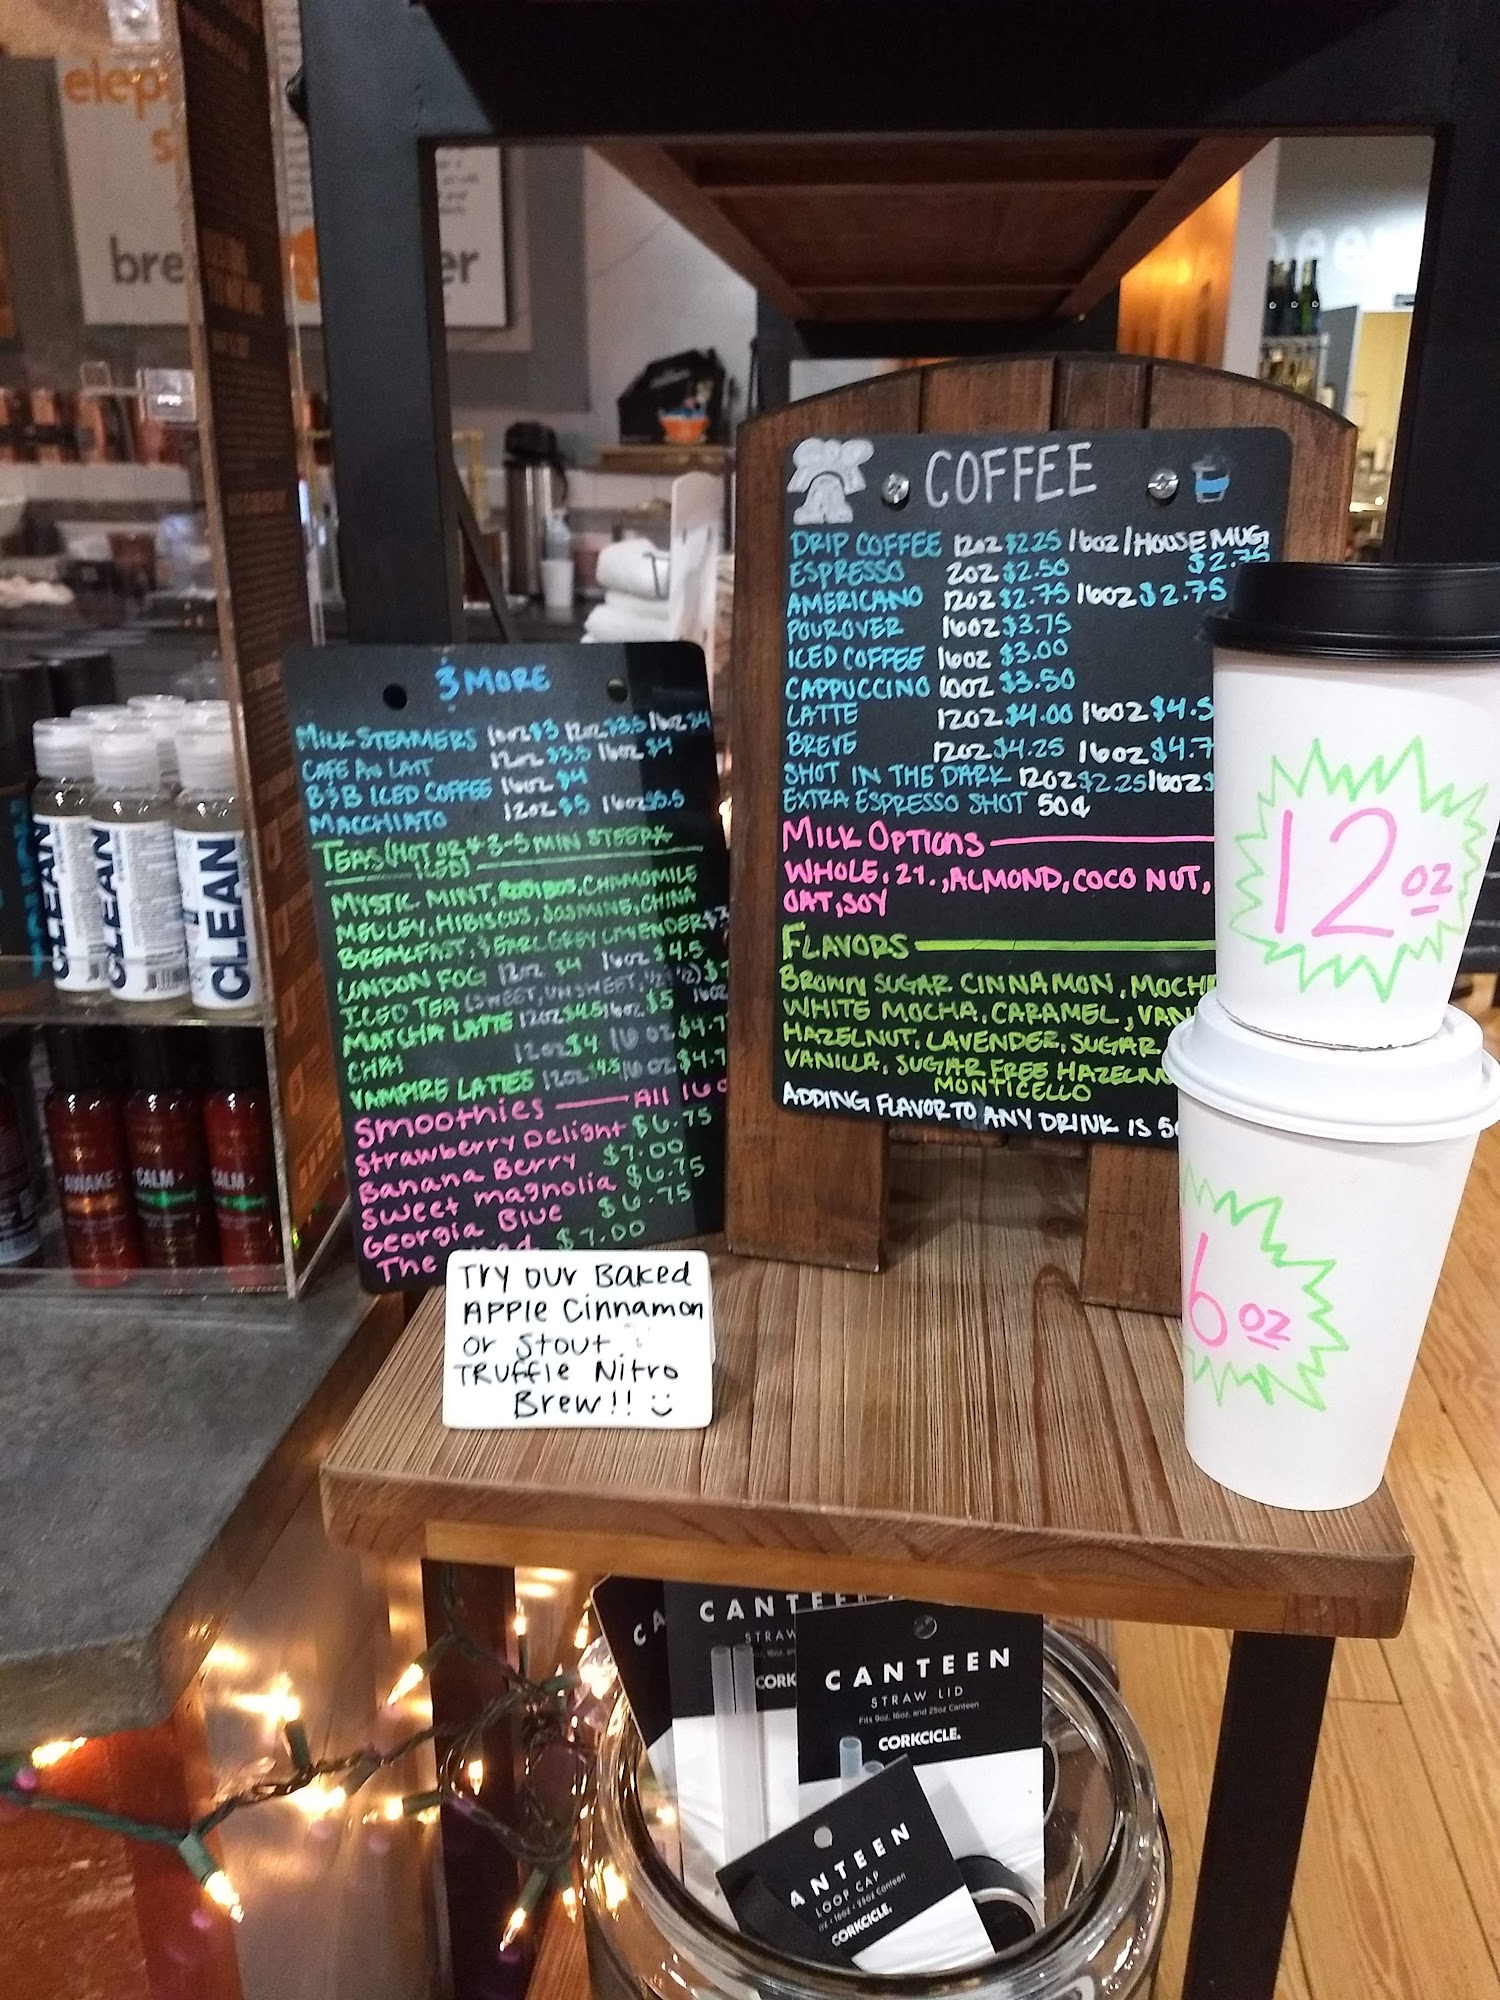 COFFEE
DRIP COFFEE 12oz $2.25 / 16oz / HOUSE MUG
$2.75
ESPRESSO 2OZ $2.50
AMERICANO 12OZ $2.75 16OZ $2.75
POUROVER 16OZ $3.75
ICED COFFEE 16OZ $3.00
CAPPUCCINO 10OZ $3.50
LATTE 12OZ $4.00 16OZ
BREVE 12OZ $4.25 16OZ
SHOT IN THE DARK 12OZ $2.25 16OZ
EXTRA ESPRESSO SHOT 50¢
MILK OPTIONS
WHOLE, 2%, ALMOND, COCO NUT,
OAT, SOY
FLAVORS
BROWN SUGAR CINNAMON,
WHITE MOCHA, CARAMEL,
HAZELNUT, LAVENDER, SUGAR
VANILLA, SUGAR FREE
MONTICELLO
ADDING FLAVOR TO ANY DRINK IS
& MORE
MILK STEAMERS 12oz $3.5 16oz $4
CAFE AU LAIT 12oz $3.5 16oz $4
B&B ICED COFFEE 16oz $4
MACCHIATO 12oz $5 16oz $5.5
TEAS (HOT OR ICED) * 3-5 MIN STEEP *
MYSTIC MINT, ROOIBOS, CHAMOMILE
MEDLEY, HIBISCUS, JASMINE, CHINA
BREAKFAST, & EARL GREY LAVENDER
LONDON FOG 12oz $4 16oz $4.5
ICED TEA (SWEET, UNSWEET, ½ & ½)
MATCHA LATTE 12oz $4.5 16oz $5
CHAI 12oz $4 16 oz
VAMPIRE LATTES 12oz $4.5 16 oz
Smoothies — All
Strawberry Delight $6.75
Banana Berry $7.00
Sweet magnolia $6.75
Georgia Blue $6.75
The $7.00
Try our Baked
Apple Cinnamon
or Stout
Truffle Nitro
Brew!! :)
12 oz
6 oz
CLEAN
CLEAN
CLEAN
AWAKE
CALM
CALM
CANTEEN
STRAW LID
Fits 9oz, 16oz, and 25oz Canteen
CORKCICLE.
LOOP CAP
CORKCICLE.